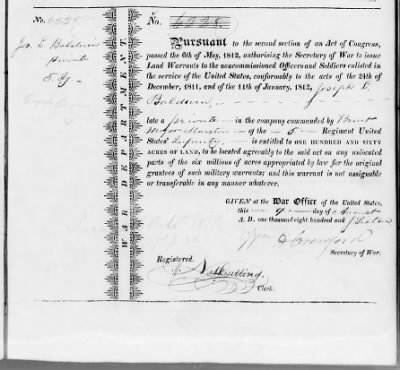 No. 6228.
No. 6228.
Jos. E. Baldwin
Private
5. Inf.
WAR DEPARTMENT
Pursuant to the second section of an Act of Congress,
passed the 6th of May, 1812, authorising the Secretary of War to issue
Land Warrants to the noncommissioned Officers and Soldiers enlisted in
the service of the United States, conformably to the acts of the 24th of
December, 1811, and of the 11th of January, 1812, Joseph E.
Baldwin,
late a private in the company commanded by Brevt
Major Marston of the 5 Regiment United
States' Infantry, is entitled to ONE HUNDRED AND SIXTY
ACRES OF LAND, to be located agreeably to the said act on any unlocated
parts of the six millions of acres appropriated by law for the original
grantees of such military warrants; and this warrant is not assignable
or transferable in any manner whatever.
GIVEN at the War Office of the United States,
this 9 day of August
A. D. one thousand eight hundred and
Crawford
Secretary of War.
Registered.
Cutting
Clerk.